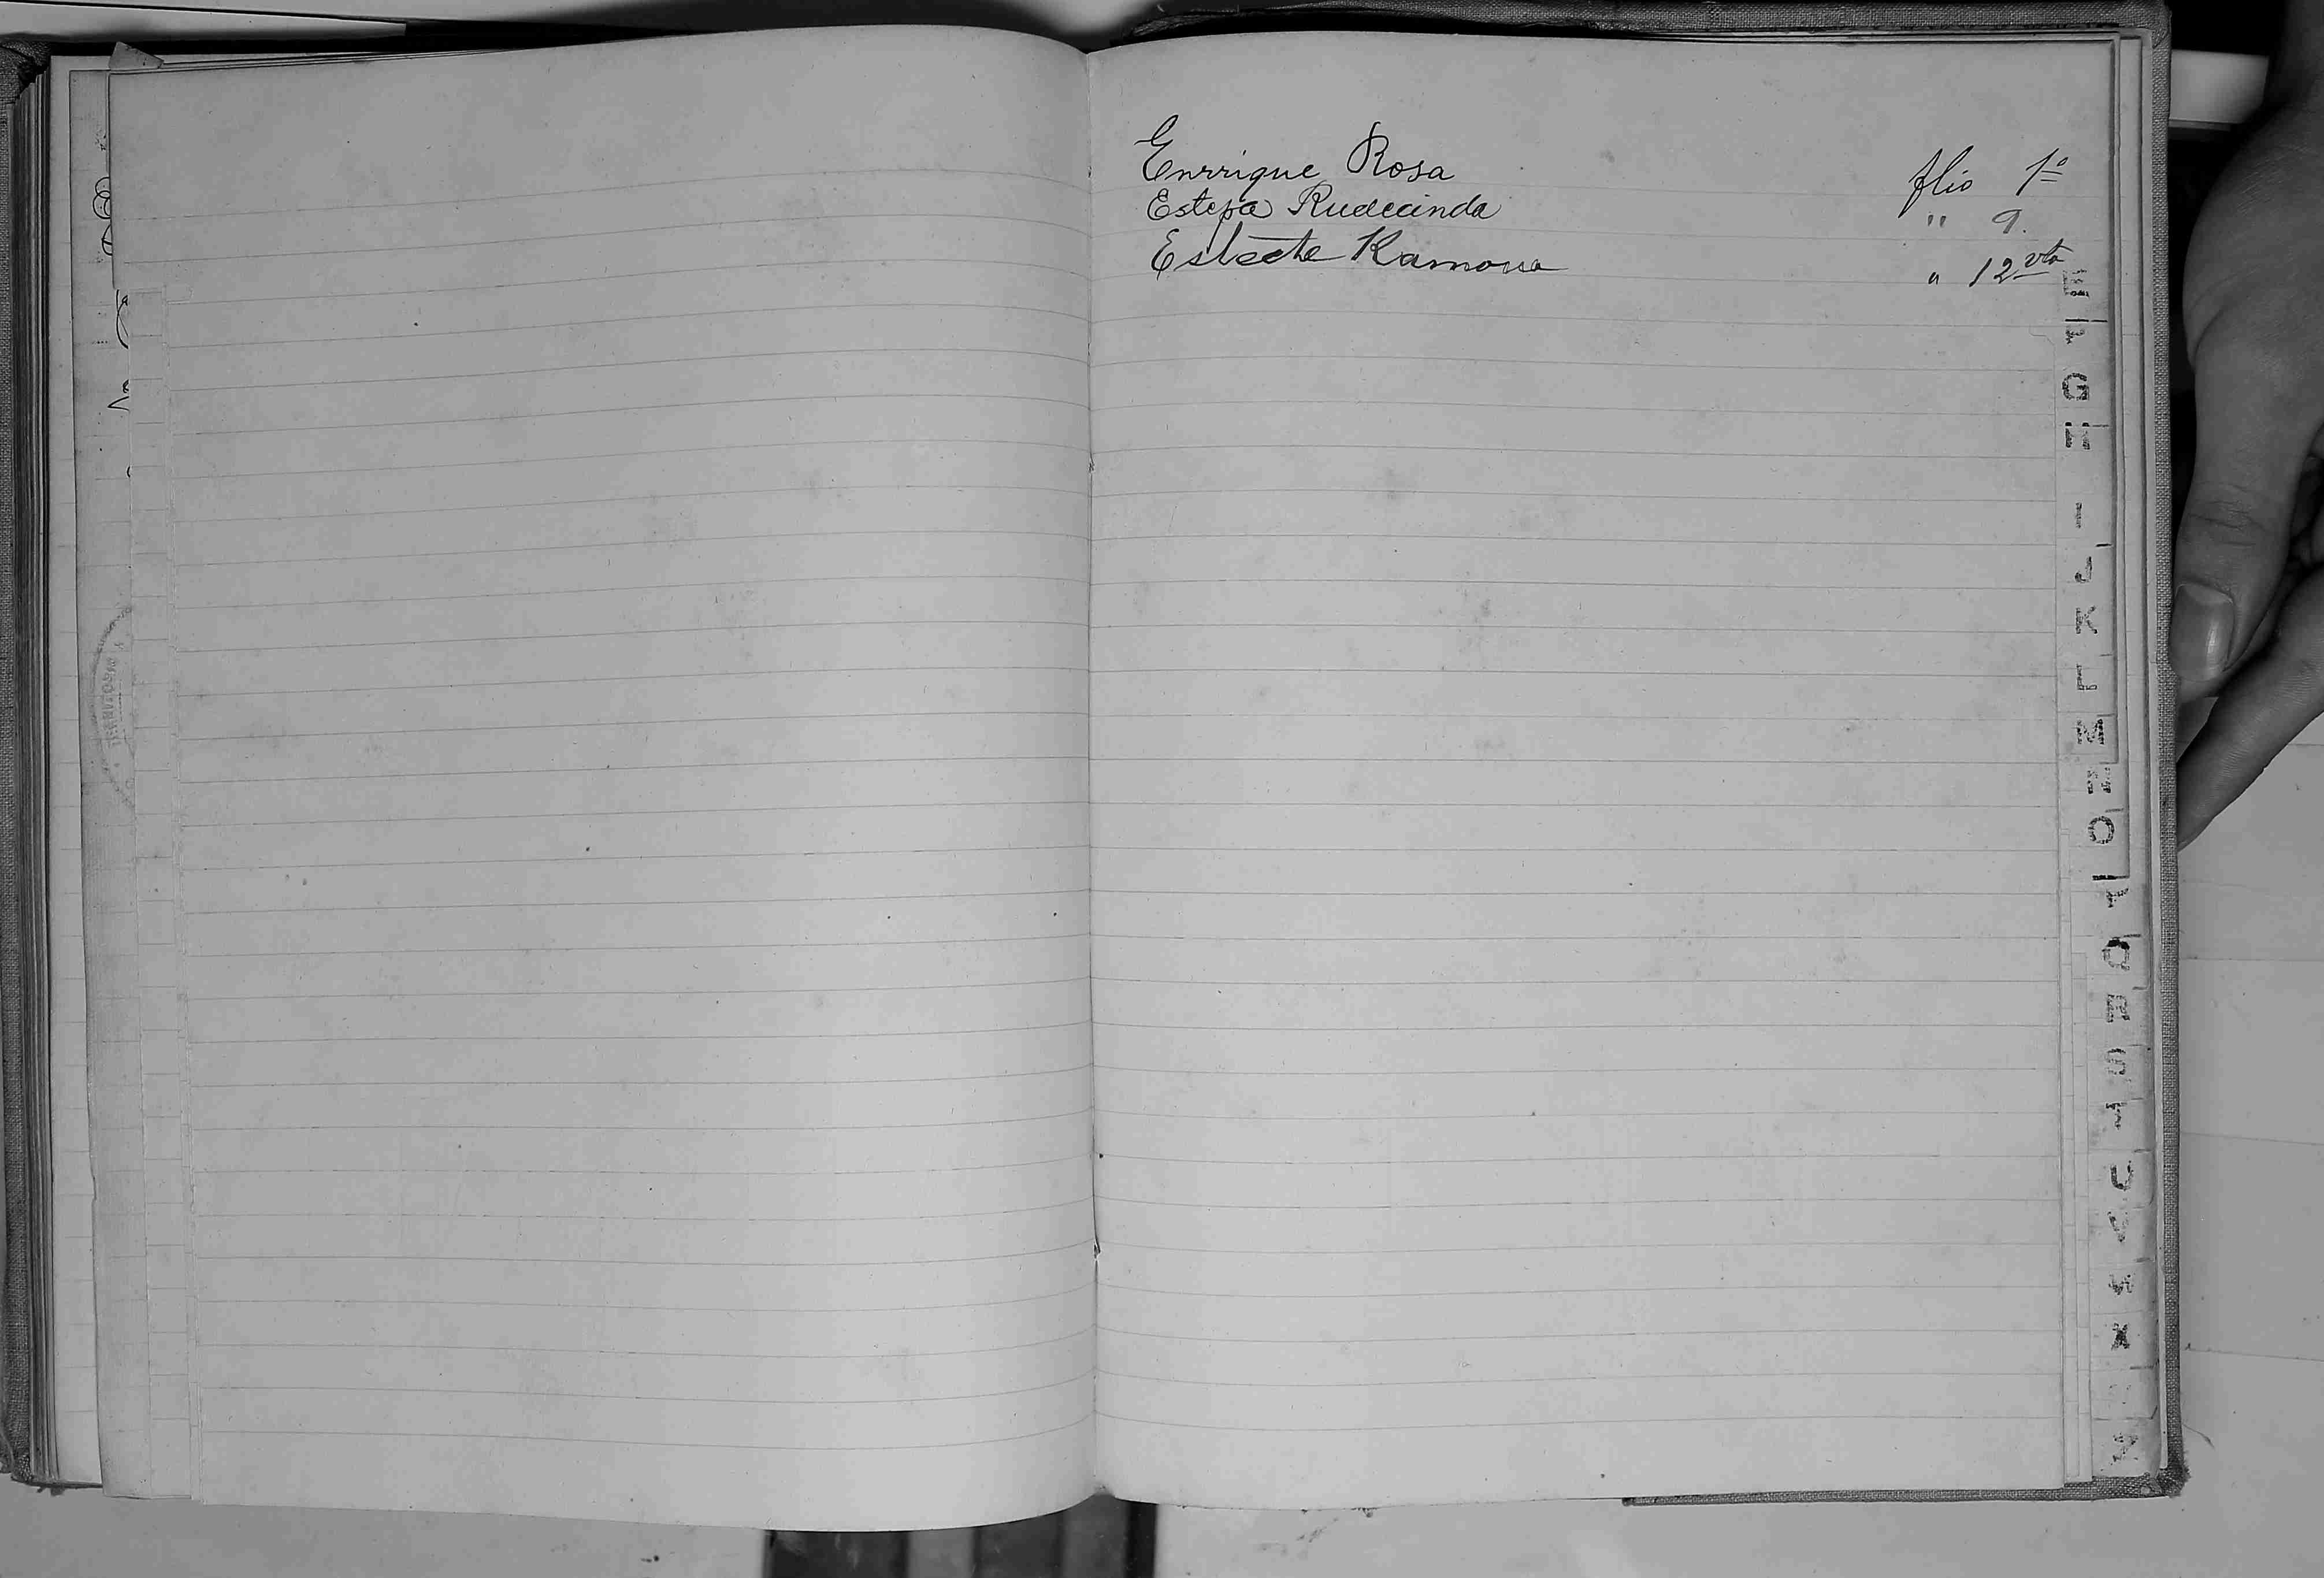 Enrrique Rosa flio 1º
Estepa Rudecinda " 9.
Ramona " 12 vta
E
F
G
H
I
J
K
L
M
N
O
P
Q
R
S
T
U
V
W
X
Z